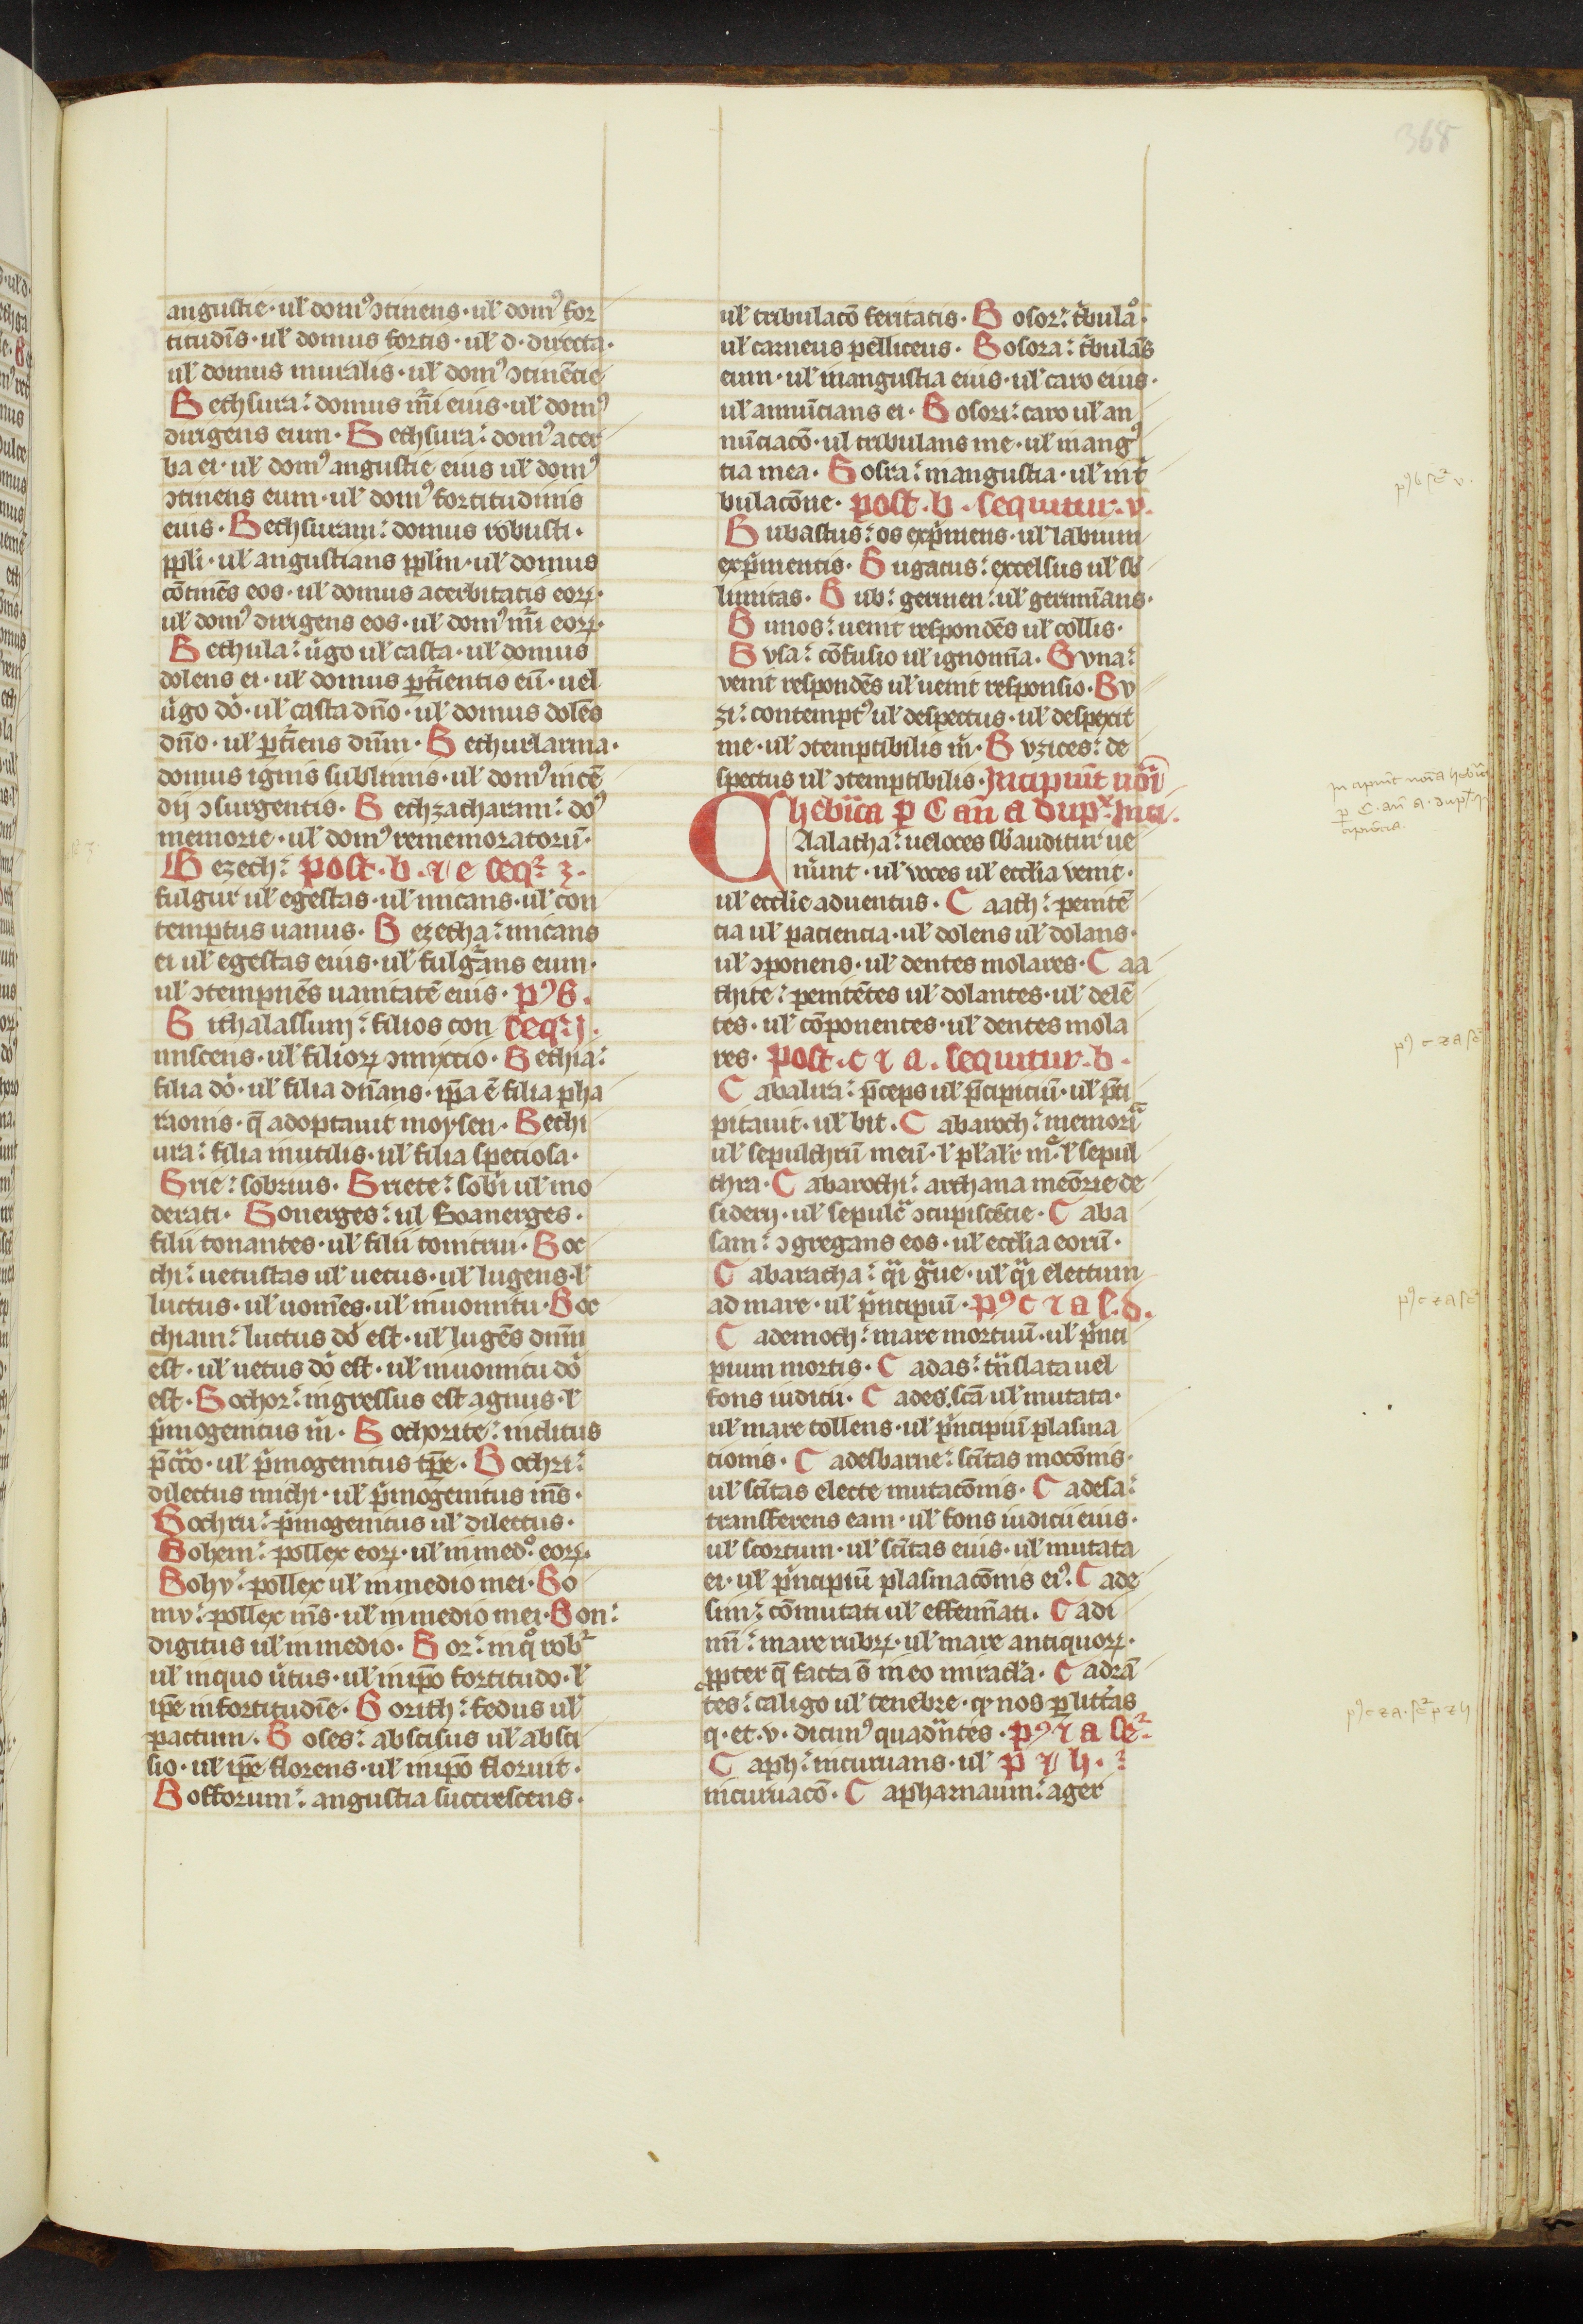 368
angustie · ul̄ domꝰ ↄtinens · ul̄ domꝰ for
titudīs · ul̄ domus fortis · ul̄ d · directa ·
ul̄ domus muralis · ul̄ domꝰ ↄtinēcie
Bethsura: domus mūri eius · ul̄ domꝰ
dirigens eum · Bethsura: domꝰ acer
ba ei · ul̄ domꝰ angustie eius ul̄ domꝰ
ↄtinens eum · ul̄ domꝰ fortitudinis
eius · Bethsuram: domus robusti ·
ppli · ul̄ angustians pplm · ul̄ domus
cōtinēs eos · ul̄ domus acerbitatis eoꝝ ·
ul̄ domꝰ dirigens eos · ul̄ domꝰ mūri eoꝝ ·
Bethula: ùgo ul̄ casta · ul̄ domus
dolens ei · ul̄ domus ꝑtũientis eū · uel
ùgo dō · ul̄ casta dn̄o · ul̄ domus dolēs
dn̄o · ul̄ ꝑtũiens dnm̄ · Bethurlarma ·
domus ignis sublimis · ul̄ domꝰ incē
dij ↄsurgentis · Bethzacharam: doꝰ
memorie · ul̄ domꝰ rememoratorū ·
Bezech: post · b · ⁊ e seqr̄ z ·
fulgur ul̄ egestas · ul̄ micans · ul̄ con
temptus uanus · Bezecha: micans
ei ul̄ egestas eius · ul̄ fulgᵃrans eum ·
ul̄ ↄtempnēs uanitatē eius · pꝰ B ·
Bithalassum: filios con seqr̄ j ·
miscens · ul̄ filioꝝ ↄmixtio · Bethia:
filia dō · ul̄ filia dn̄ans · ip̄a ē filia pha
raonis · q̄ adoptauit moysen · Bethi
ura: filia inutilis · ul̄ filia speciosa ·
Brie: sobrius · Briete: sobri ul̄ mo
derati · Bonerges: ul Boanerges ·
filii tonantes · ul̄ filii tonitrui · Boc
chi: uetustas ul̄ uetus · ul̄ lugens · l̄
luctus · ul̄ uomēs · ul̄ inuomitu · Boc
chiam: luctus dō est · ul̄ lugēs dnm̄
est · ul̄ uetus dō est · ul̄ inuomitu dō
est · Bochor: ingressus est agnus · l̄
pͥmogenitus m̄ · Bochorite: inclitus
p̄ctō · ul̄ pͥmogenitus tp̄e · Bochri:
dilectus michi · ul̄ pͥmogenitus m̄s ·
Bochru: pͥmogenitus ul̄ dilectus ·
Bohem: pollex eoꝝ · ul̄ in med̊ eoꝝ ·
Bohy: pollex ul̄ in medio mei · Bo
my: pollex m̄s · ul̄ in medio mei · Bon:
digitus ul̄ in medio · Bor: in q̊ robr̄
ul̄ inquo ùtus · ul̄ in ip̄o fortitudo · l̄
ip̄e in fortitudīe · Borith: fedus ul̄
pactum · Boses: abscisus ul̄ absci
sio · ul̄ ip̄e florens · ul̄ in ip̄o floruit ·
Bofforum: angustia succrescens ·
ul̄ tribulacō feritatis · Bosor: tͥbulao̊ ·
ul̄ carneus pelliceus · Bosora: tͥbulās
eum · ul̄ in angustia eius · ul̄ caro eius ·
ul̄ annūcians ei · Bosori: caro ul̄ an
nūciacō · ul tribulans me · ul̄ in angꝰ
tia mea · Bosra: in angustia · ul̄ in tͥ
bulacōne · post · b · sequitur · v ·
Bubastus: os expͥmens · ul̄ labium
expͥmentis · Bugatus: excelsus ul̄ sb̄
limitas · Bub: germen: ul̄ germīans ·
Bunos: uenit respondēs ul̄ collis ·
Bvsa: cōfusio ul̄ ignomīa · Bvna:
venit respondēs ul̄ uenit responsio · Bv
zi: contemptꝰ ul̄ despectus · ul̄ despexit
me · ul̄ ↄtemptibilis m̄ · Bvzites: de
spectus ul̄ ↄtemptibilis · Incipiūt noīa
hebͥica ꝑ C an̄ a dupx̄ Inci ·
CAalatha: ueloces sb̄auditur ue
nͥunt · ul̄ voces ul̄ ecclīa venit ·
ul̄ ecclīe aduentus · Caath: penitē
cia ul̄ paciencia · ul̄ dolens ul̄ dolans ·
ul̄ ↄponens · ul̄ dentes molares · Caa
thite: penitētes ul̄ dolantes · ul̄ dolē
tes · ul̄ cōponentes · ul̄ dentes mola
res · post · c ⁊ a · sequitur · b ·
Cabalira: p̄nceps ul̄ p̄cipiciū · ul̄ p̄ci
pitauit · ul̄ bit · Cabaroth: memorīa
ul̄ sepulchrū meū · l̄ m̊ · l̄ sepul
thra · Cabarothi: archana meōrie de
siderij · ul̄ sepulcᵃ ↄcupiscēcie · Caba
sam: ↄgregans eos · ul̄ ecclīa eorū ·
Cabaratha: qͣi gᵃue · ul̄ qͣi electum
ad mare · ul̄ pͥncipiū · pꝰ c ⁊ a s · d ·
Cademoth: mare mortuū · ul̄ pͥnci
pium mortis · Cadas: tͣnslata uel
fons iudicii · Cades: sc̄a ul̄ mutata ·
ul̄ mare tollens · ul̄ pͥncipiū plasma
cionis · Cadesbarne: sc̄itas mocōnis ·
ul̄ sc̄itas electe mutacōnis · Cadesa:
transferens eam · ul̄ fons iudicii eius ·
ul̄ scortum · ul̄ sc̄itas eius · ul̄ mutata
ei · ul̄ pͥncipiū plasmacōnis eiꝰ · Cade
sim: cōmutati ul̄ effemīati · Cadi
mī: mare rubꝝ · ul̄ mare antiquoꝝ ·
ꝓpter q̄ facta ō in eo miracl̄a · Cadrā
tes: caligo ul̄ tenebre · qꝫ nos ꝑ litt̄as
q · et · v · dicimꝰ quadͣntes · pꝰ ⁊ a seqr̄
Caph: incuruans · ul̄ p ⁊ h ·
incuruacō · Capharnaum: ager
pꝰ b seqr̄ v ·
Incipiūt noīa hebͥica
ꝑ C · an̄ a · dupx̄ ·
cipiēcia ·
pꝰ c ⁊ a seqr̄
pꝰ c ⁊ a seqr̄
pꝰ c ⁊ a · seqr̄ p ⁊ h